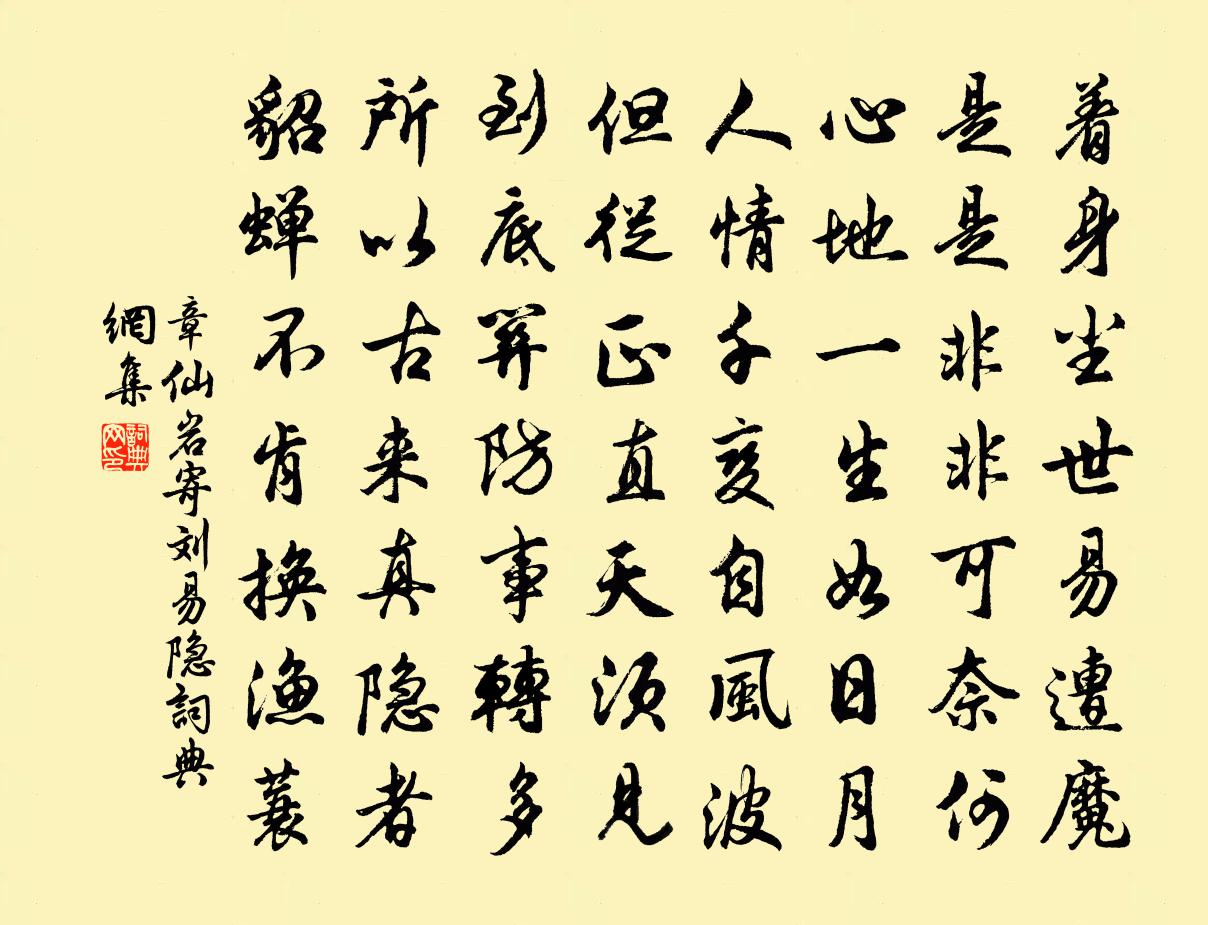 着身尘世易遭魔
是是非非可奈何
心地一生如日月
人情千变自風波
但従正直天须見
到底關防事轉多
所以古来真隐者
貂蝉不肯换渔蓑
章仙岩寄刘易隐詞典
網集
詞典网印